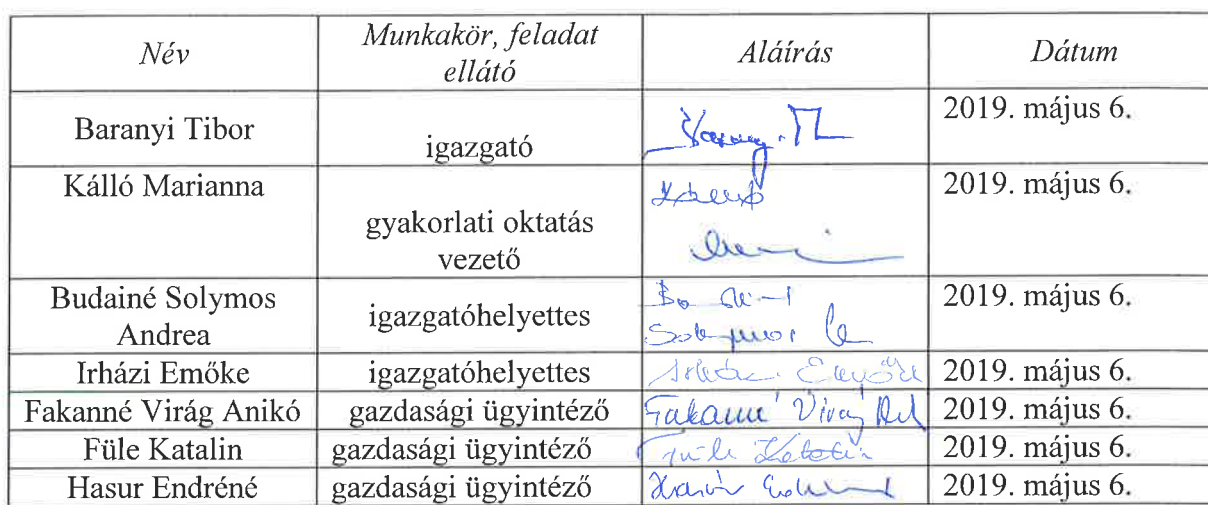 Név
Munkakör, feladat
ellátó
Aláírás
Dátum
Baranyi Tibor
igazgató
2019. május 6.
Kálló Marianna
gyakorlati oktatás
vezető
2019. május 6.
Budainé Solymos
Andrea
igazgatóhelyettes
2019. május 6.
Irházi Emőke
igazgatóhelyettes
2019. május 6.
Fakanné Virág Anikó
gazdasági ügyintéző
Fakanné Virág
2019. május 6.
Füle Katalin
gazdasági ügyintéző
Füle Katalin
2019. május 6.
Hasur Endréné
gazdasági ügyintéző
2019. május 6.